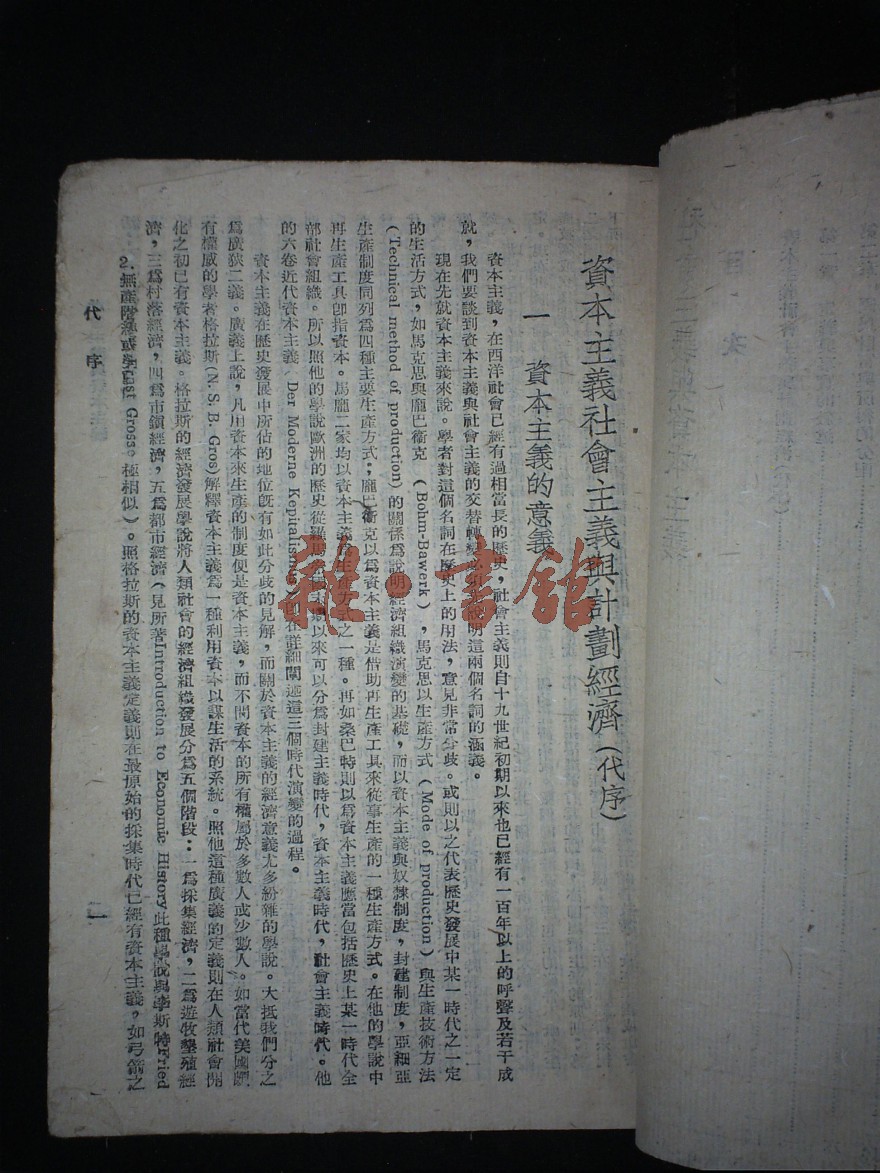 資本主義社會主義與計劃經濟（代序）
一　資本主義的意義
資本主義，在西洋社會已經有過相當長的歷史，社會主義則自十九世紀初期以來也已經有一百年以上的呼聲及若干成
就，我們要談到資本主義與社會主義的交替轉變，必須說明這兩個名詞的涵義。
現在先就資本主義來說。學者對這個名詞在歷史上的用法，意見非常分歧。或則以之代表歷史發展中某一時代之一定
的生活方式，如馬克思與龐巴衞克（Bohm-Bawerk），馬克思以生產方式（Mode of production）與生產技術方法
（Technical method of production）的關係為說明經濟組織演變的基礎，而以資本主義與奴隸制度，封建制度，亞細亞
生產制度同列為四種主要生產方式；龐巴衞克以為資本主義是借助再生產工具來從事生產的一種生產方式。在他的學說中
再生產工具卽指資本。馬龐二家均以資本主義為生產方式之一種。再如桑巴特則以為資本主義應當包括歷史上某一時代全
部社會組織。所以照他的學說歐洲的歷史從羅馬以來可以分為封建主義時代，資本主義時代，社會主義時代。他
的六卷近代資本主義（Der Moderne Kepitalismus）卽在詳細闡述這三個時代演變的過程。
資本主義在歷史發展中所佔的地位旣有如此分歧的見解，而關於資本主義的經濟意義尤多紛雜的學說。大抵我們分之
為廣狹二義。廣義上說，凡用資本來生產的制度便是資本主義，而不問資本的所有權屬於多數人或少數人。如當代美國頗
有權威的學者格拉斯(N. S. B. Gros)解釋資本主義為一種利用資本以謀生活的系統。照他這種廣義的定義則在人類社會開
化之初已有資本主義。格拉斯的經濟發展學說將人類社會的經濟組織發展分為五個階段：一為採集經濟，二為遊牧墾殖經
濟，三為村落經濟，四為市鎮經濟，五為都市經濟（見所著Introduction to Economic History此種學說與李斯特Fried
2.無產階級或學List Gross。極相似）。照格拉斯的資本主義定義則在最原始的採集時代已經有資本主義，如弓箭之
代序
一
雜·書館